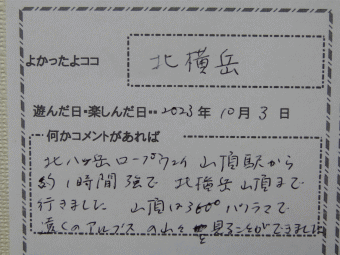 よかったよココ 北横岳
遊んだ日・楽しんだ日・・2023年 10月 3日
何かコメントがあれば
北八ヶ岳ロープウェイ 山頂駅から
約1時間強で 北横岳山頂まで
行きました 山頂は360°パノラマで
遠くのアルプスの山々を見ることができました